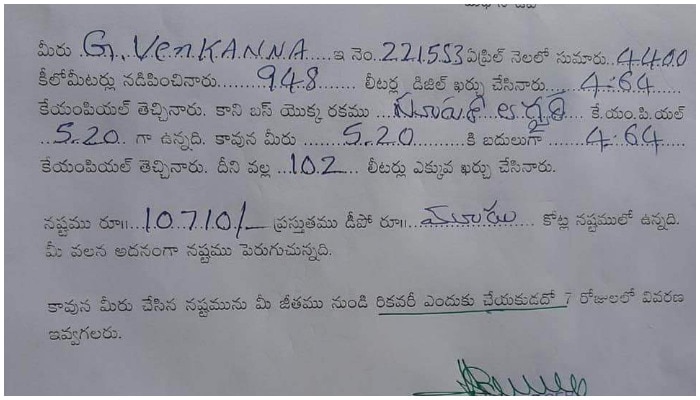 మీరు G. VenKANNA ఇ నెం. 221553 ఏప్రిల్ నెలలో సుమారు 4400
కిలోమీటర్లు నడిపించినారు. 948 లీటర్ల డిజిల్ ఖర్చు చేసినారు. 4.64
కేయంపియల్ తెచ్చినారు. కాని బస్ యొక్క రకము కే.యం.పి.యల్
5.20 గా ఉన్నది. కావున మీరు 5.20 కి బదులుగా 4.64
కేయంపియల్ తెచ్చినారు. దీని వల్ల 102 లీటర్లు ఎక్కువ ఖర్చు చేసినారు.
నష్టము రూ॥ 10.710/- ప్రస్తుతము డీపో రూ॥ మూడు కోట్ల నష్టములో ఉన్నది.
మీ వలన అదనంగా నష్టము పెరుగుచున్నది.
కావున మీరు చేసిన నష్టమును మీ జీతము నుండి రికవరీ ఎందుకు చేయకుడదో 7 రోజులలో వివరణ
ఇవ్వగలరు.